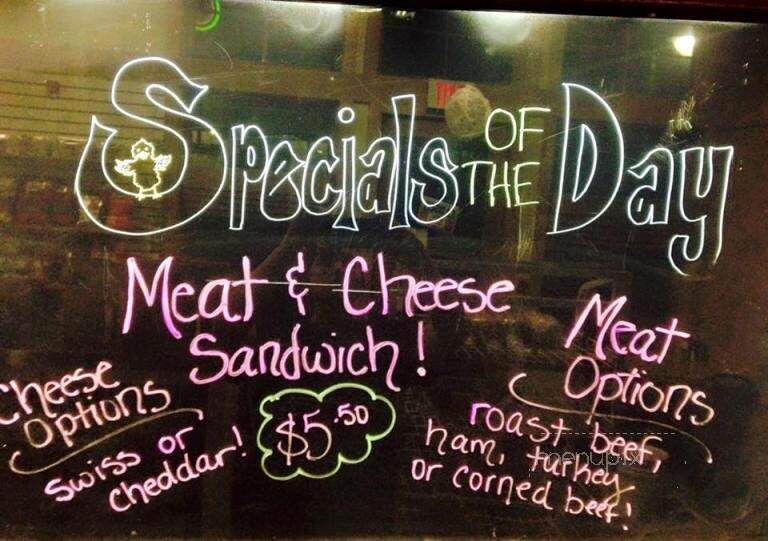 Specials OF THE Day
Meat & Cheese
Sandwich!
$5.50
Cheese
Options
swiss or
cheddar!
Meat
Options
roast beef,
ham, turkey
or corned beef!
menupix